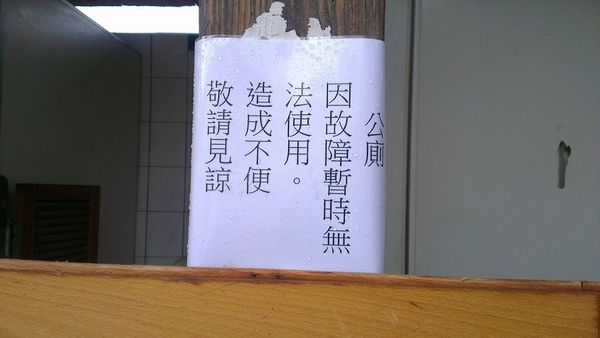 公廁
因故障暫時無
法使用。
造成不便
敬請見諒